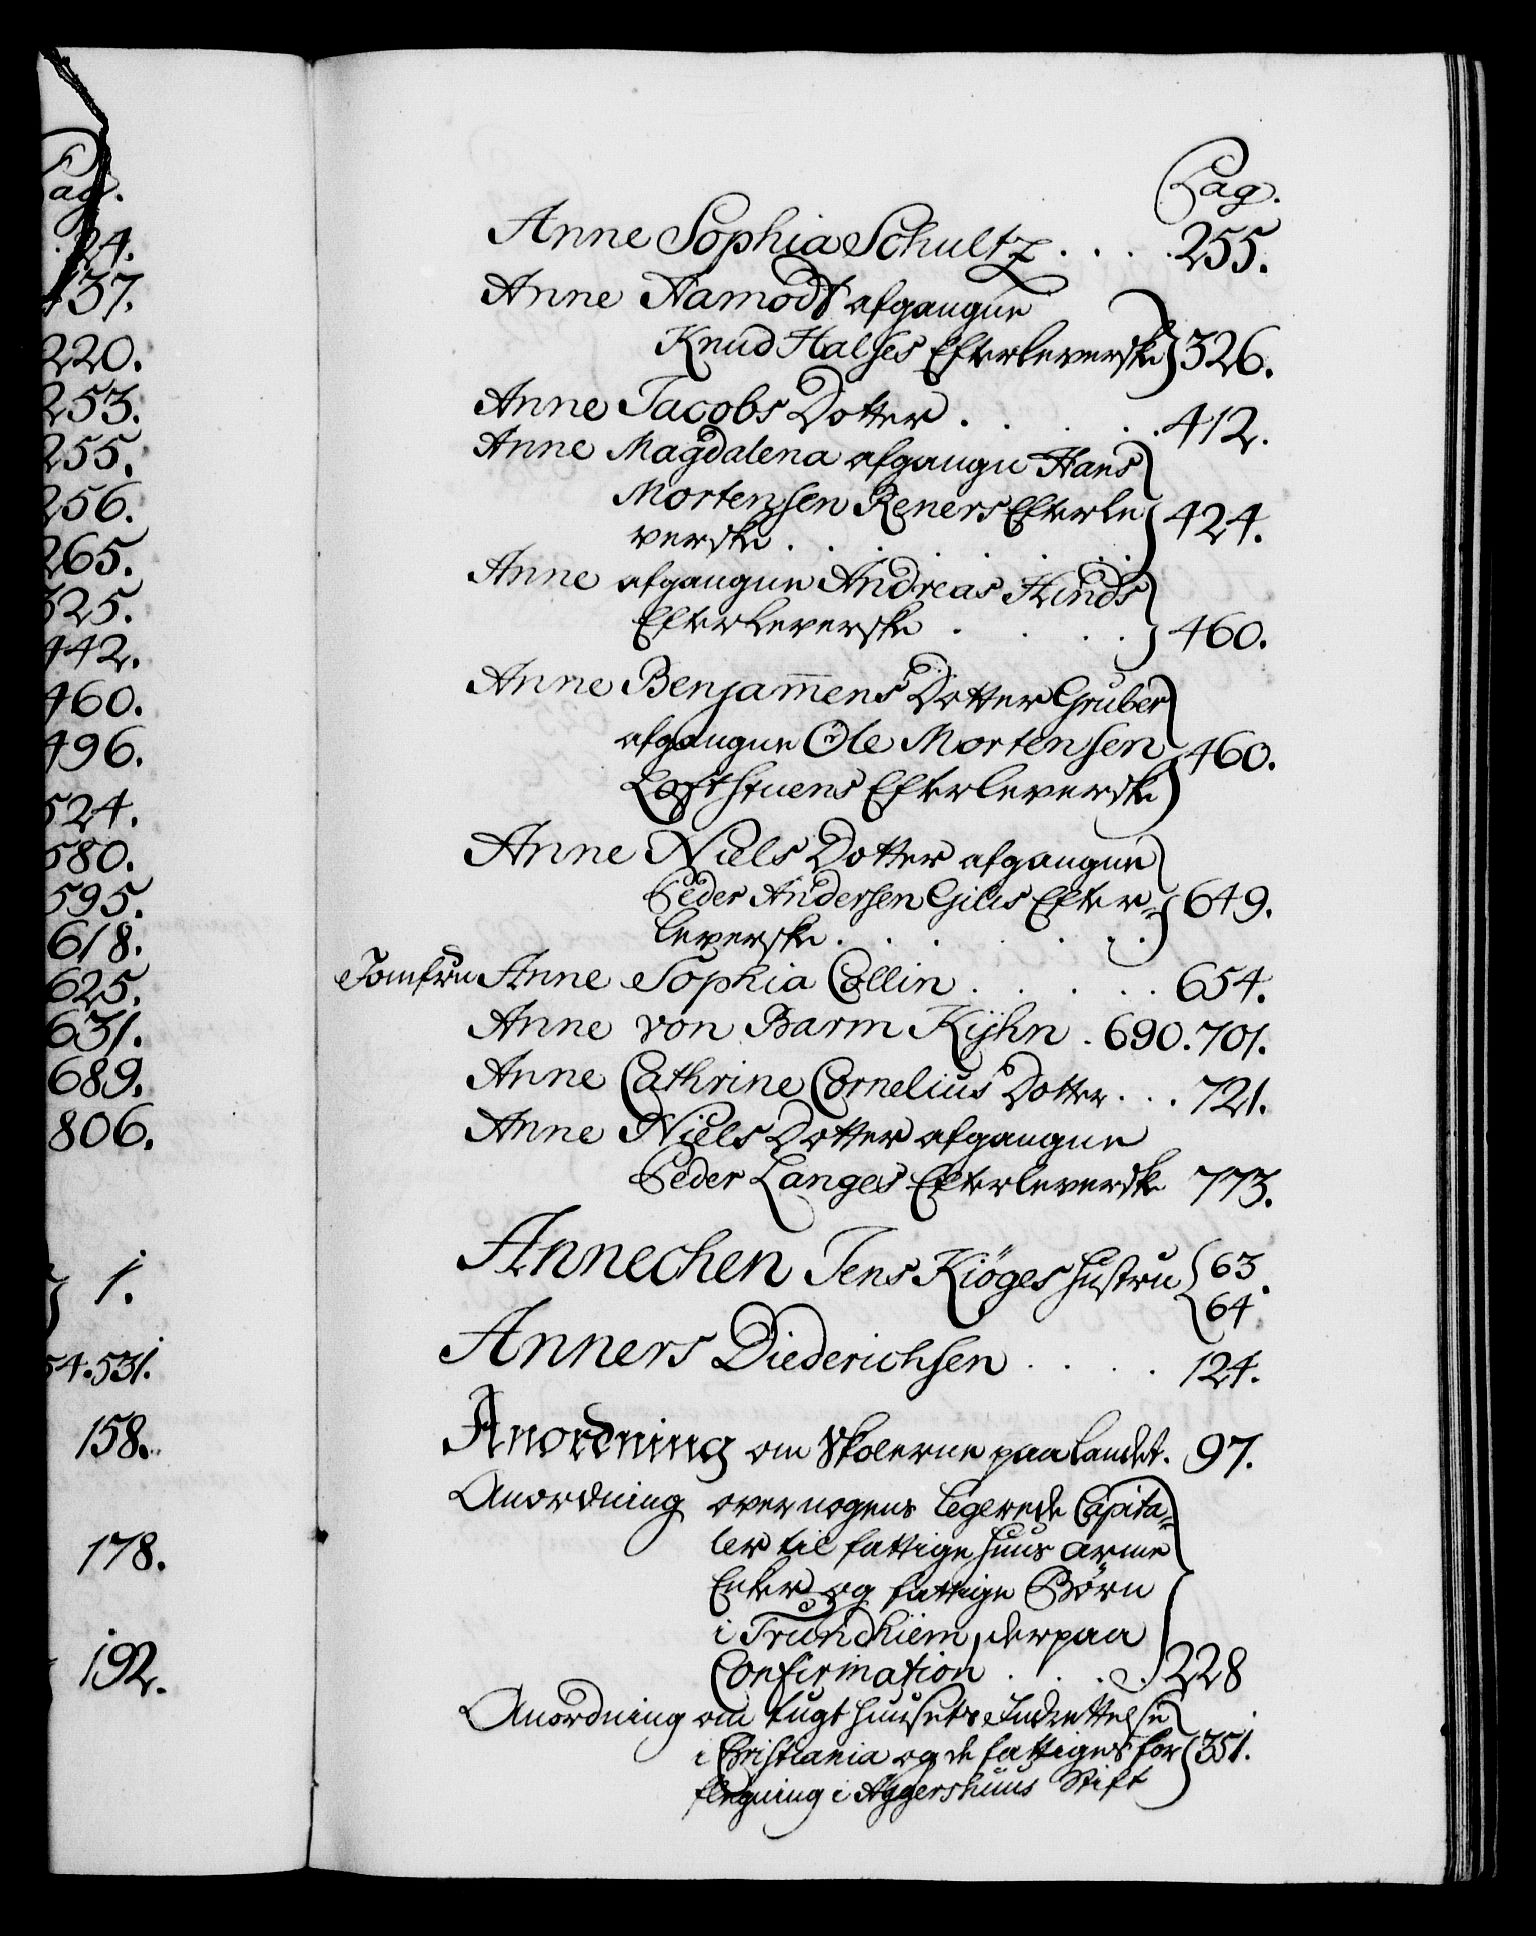 Pag.
24.
437.
220.
253.
255.
256.
265.
325.
442.
460.
496.
524.
580.
595.
618.
625.
631.
689.
806.
1.
54.531.
158.
178.
192.
Pag.
Anne Sophia Schultz . . . . 255.
Anne Hamodt afgangne
Knud Halses Efterleverske } 326.
Anne Jacobs Dotter . . . . 412.
Anne Magdalena afgangne Hans
Mortensen Reners Efterle
verske . . . . . } 424.
Anne afgangne Andreas Hinds
Efterleverske . . . . } 460.
Anne Benjamens Dotter Gruber
afgangne Ole Mortensen
Loftstuens Efterleverske } 460.
Anne Niels Dotter afgangne
Peder Andersen Giles Efter-
leverske . . . . . } 649.
Jomfru Anne Sophia Collin . . . . . 654.
Anne von Barm Kÿhn . 690. 701.
Anne Cathrine Cornelius Dotter . . . 721.
Anne Niels Dotter afgangne
Peder Langes Efterleverske 773.
Annechen Jens Kiøges Hustru { 63.
64
Anners Diederichsen . . . . 124.
Anordning om Skolerne paa Landet. 97.
Anordning over nogens legerede Capita-
ler til fattige Huus arme
Enker og fattige Børn
i Trundhiem, derpaa
Confirmation . . . . } 228
Anordning om Tugt Huusets Indrettelse
i Christiania og de fattiges for
flegning i Aggershuus Stift } 351.